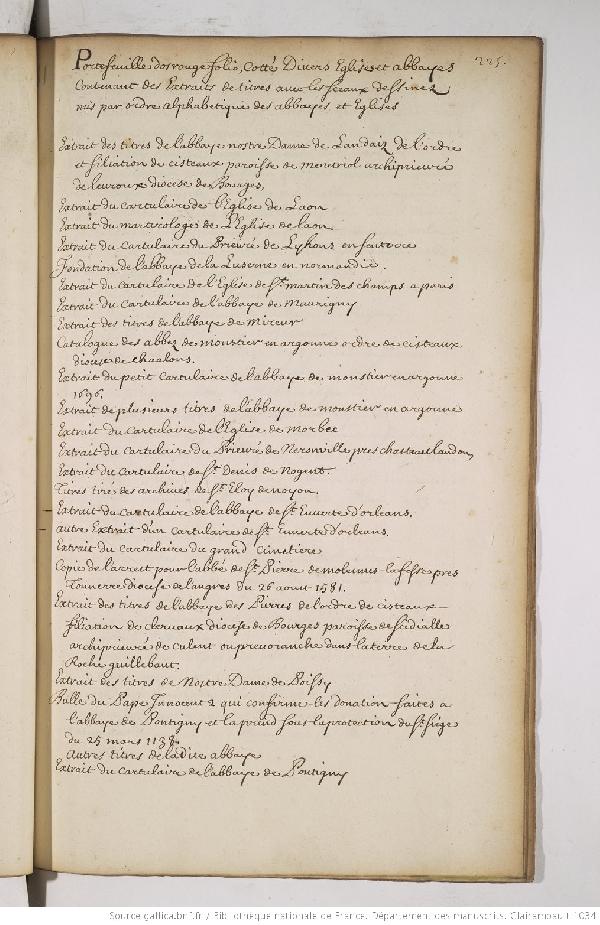 225.
Portefeuille dos rouge folio, Cotté Divers Eglises et abbayes
Contenant des Extraits de titres avec les sceaux dessinez
mis par ordre alphabetique des abbayes et Eglises
Extrait des titres de l'abbaye nostre Dame de Landaiz de l'ordre
et filiation de cisteaux paroisse de menetriol archiprieuré
de leuroux diocese de Bourges,
Extrait du Cartulaire de l'Eglise de Laon
Extrait du martirologe de L'Eglise de laon
Extrait du Cartulaire du Prieuré de Lyhons en santerre
Fondation de l'abbaye de la Luserne en normandie.
Extrait du Cartulaire de l'Eglise de St. martin des champs a paris
Extrait du Cartulaire de l'abbaye de Maurigny
Extrait des titres de l'abbaye de Mireur
Catalogue des abbez de monstier en argonne ordre de cisteaux
diocese de chaalons.
Extrait du petit Cartulaire de l'abbaye de monstier en argonne
1696.
Extrait de plusieurs titres de l'abbaye de monstier en argonne
Extrait du Cartulaire de l'Eglise de morbec
Extrait du Cartulaire du Prieuré de Neronville pres chasteaulandon
Extrait du Cartulaire de St. Denis de Nogent.
Titres tirés des archives de St. Eloy de noyon.
Extrait du Cartulaire de l'abbaye de St. Euverte d'orleans.
autre Extrait d'un Cartulaire de St. Euverte d'orleans.
Extrait du Cartulaire du grand Cimetiere
Copie de l'arrest pour l'abbé de St. Pierre de molumes pres
Tonnerre diocese de langres du 26 aoust 1581.
Extrait des titres de l'abbaye des Pierres de l'ordre de cisteaux
filiation de clervaux diocese de Bourges paroisse de sidialle
archiprieuré de culent dans la terre de la
Roche guillebaut.
Extrait des titres de Nostre Dame de Poissy
Bulle du Pape Innocent 2 qui confirme les donation faites a
l'abbaye de Pontigny et la prend sous la protection du St. siege
du 25 mars 1138
Autres titres de la dite abbaye
Extrait du Cartulaire de l'abbaye de Pontigny
Source gallica.bnf.fr / Bibliothèque nationale de France. Département des manuscrits. Clairambault 1034